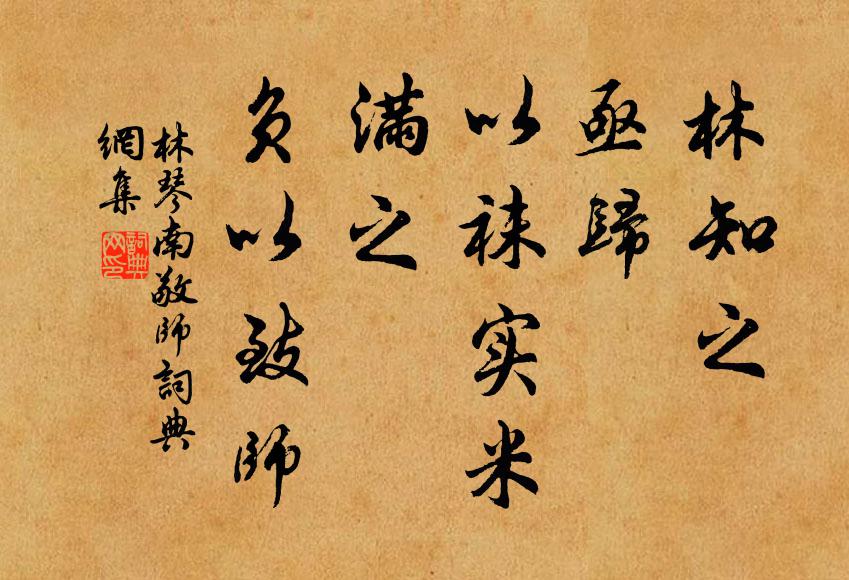 林知之
亟歸
以袜实米
满之
负以致師
林琴南敬師詞典
網集
詞典
网印